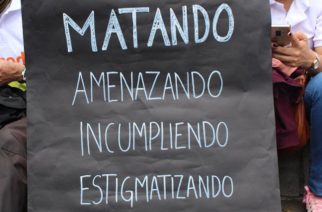 MATANDO
AMENAZANDO
INCUMPLIENDO
ESTIGMATIZANDO